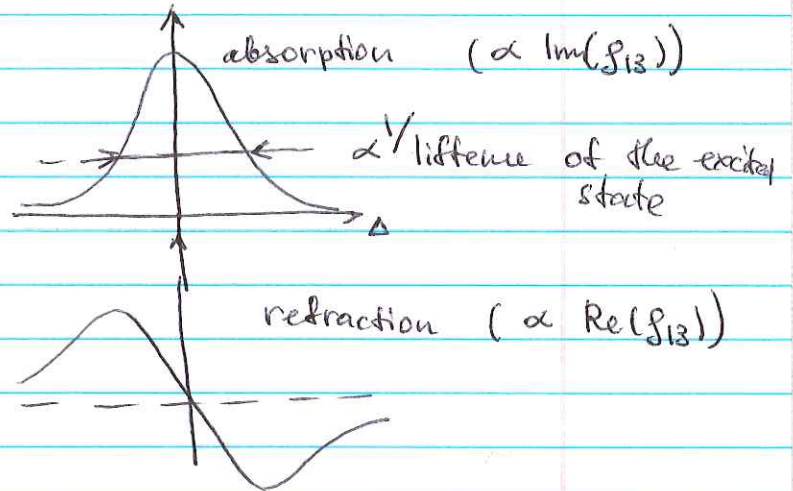 absorption (∝ Im(ρ₁₃))
∝ 1/lifteme of the excited
state
Δ
refraction (∝ Re(ρ₁₃))